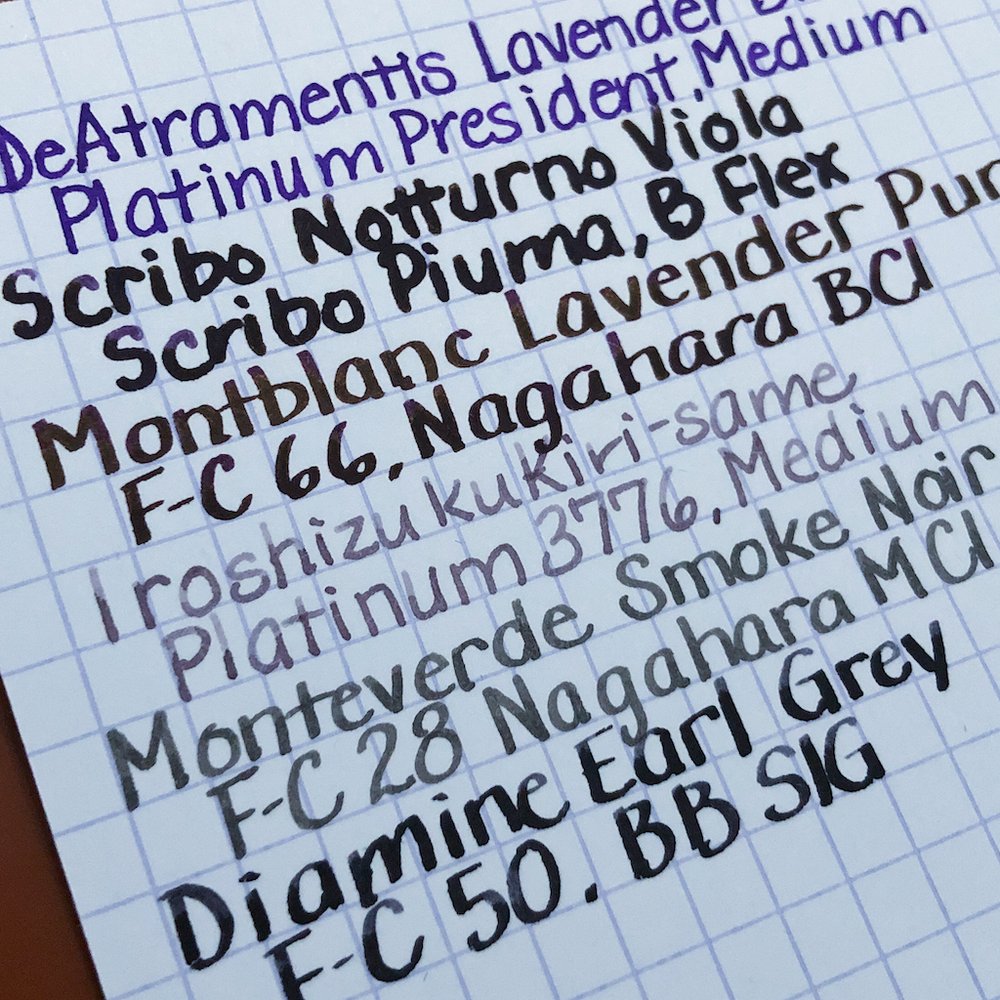 DeAtramentis Lavender
Platinum President, Medium
Scribo Notturno Viola
Scribo Piuma, B Flex
Montblanc Lavender Pur
F-C 66, Nagahara BCI
Iroshizuku kiri-same
Platinum 3776, Medium
Monteverde Smoke Noir
F-C 28 Nagahara MCI
Diamine Earl Grey
F-C 50. BB SIG